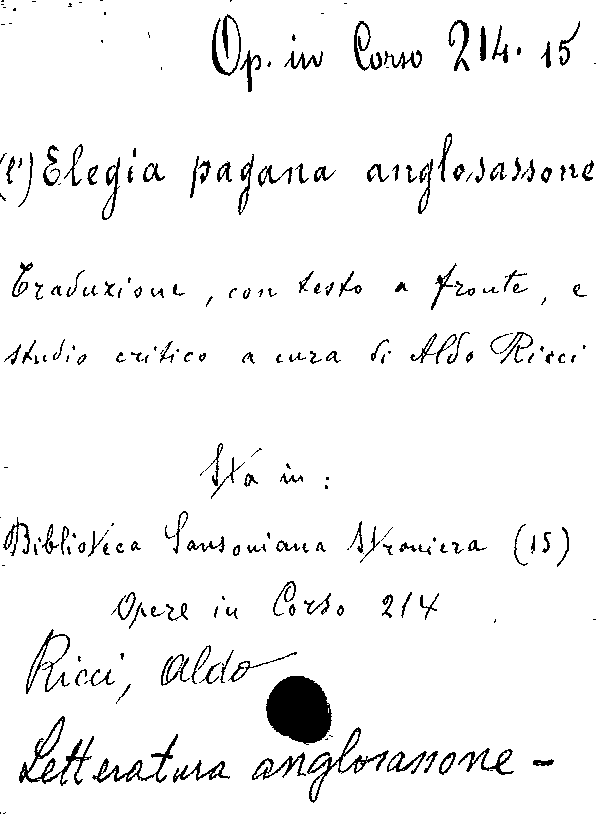 Op. in Corso 214. 15
(l') Elegia pagana anglosassone
Traduzione, con testo a fronte, e
studio critico a cura di Aldo Ricci
Sta in:
Biblioteca Sansoniana Straniera (15)
Opere in Corso 214
Ricci, Aldo
Letteratura anglosassone -